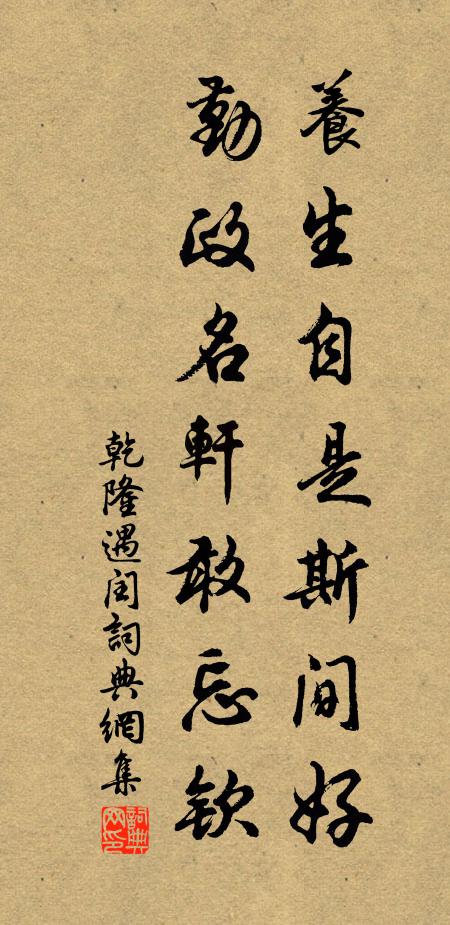 養生自是斯間好
勤政名軒敢忘欽
乾隆遇閏詞典網集
詞典網印